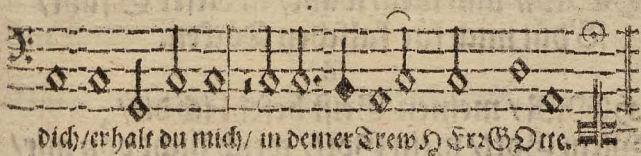 dich/erhalt du mich/ in deiner Trew HErꝛ GOtte.